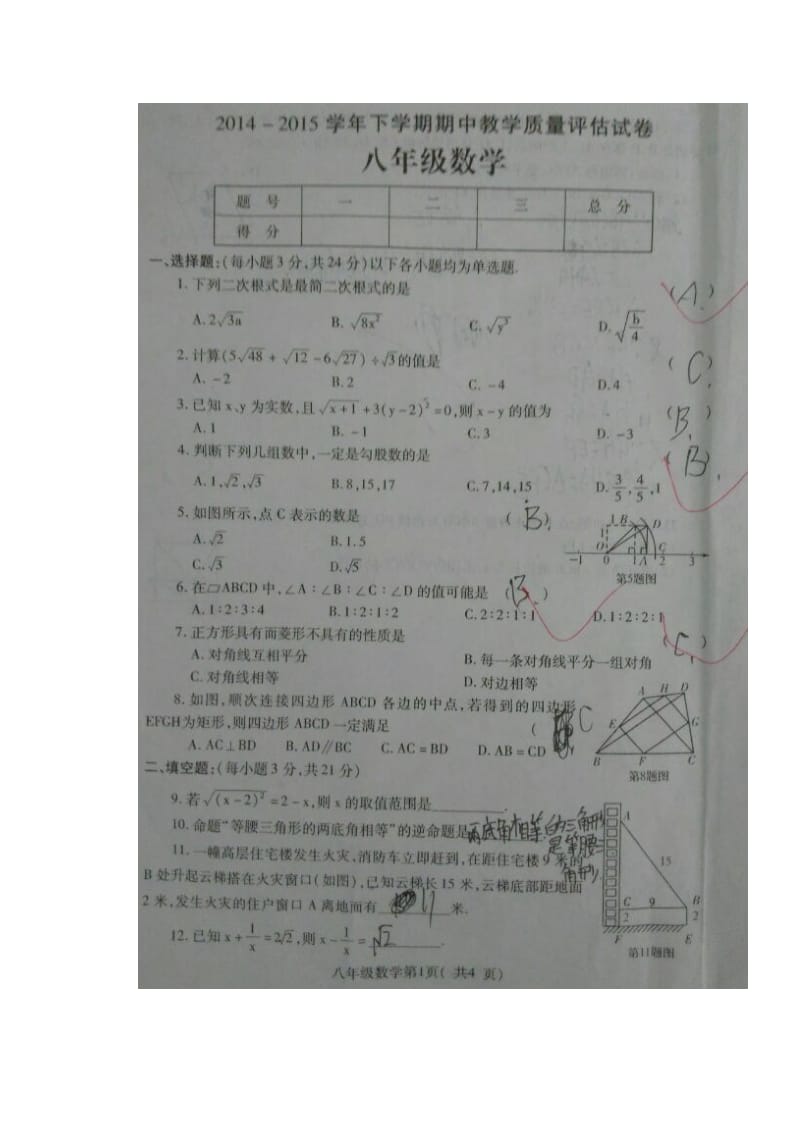 2014-2015学年下学期期中教学质量评估试卷
八年级数学
题 号 一 二 三 总 分
得 分
一、选择题:(每小题3分,共24分)以下各小题均为单选题.
1.下列二次根式是最简二次根式的是 (A.)
A.2√3a B.√8x² C.√y³ D.√b/4
2.计算(5√48+√12-6√27)÷√3的值是 (C.)
A.-2 B.2 C.-4 D.4
3.已知x、y为实数,且√x+1+3(y-2)²=0,则x-y的值为 (B.)
A.1 B.-1 C.3 D.-3
4.判断下列几组数中,一定是勾股数的是 (B.)
A.1,√2,√3 B.8,15,17 C.7,14,15 D.3/5,4/5,1
5.如图所示,点C表示的数是 (B.)
A.√2 B.1.5
C.√3 D.√5
1 B D
1
O A C
-1 0 1 2 3
第5题图
6.在▱ABCD中,∠A∶∠B∶∠C∶∠D的值可能是 (B.)
A.1∶2∶3∶4 B.1∶2∶1∶2 C.2∶2∶1∶1 D.1∶2∶2∶1
7.正方形具有而菱形不具有的性质是 (C.)
A.对角线互相平分 B.每一条对角线平分一组对角
C.对角线相等 D.对边相等
8.如图,顺次连接四边形ABCD各边的中点,若得到的四边形
EFGH为矩形,则四边形ABCD一定满足 ( C
A.AC⊥BD B.AD∥BC C.AC=BD D.AB=CD
A H D
E G
B F C
第8题图
二、填空题:(每小题3分,共21分)
9.若√(x-2)²=2-x,则x的取值范围是
10.命题“等腰三角形的两底角相等”的逆命题是 两底角相等的三角形
是等腰
三角形.
11.一幢高层住宅楼发生火灾,消防车立即赶到,在距住宅楼9米的
B处升起云梯搭在火灾窗口(如图),已知云梯长15米,云梯底部距地面
2米,发生火灾的住户窗口A离地面有 11 米.
A
15
C 9 B
2 2
F E
第11题图
12.已知x+1/x=2√2,则x-1/x=√2.
八年级数学第1页(共4页)